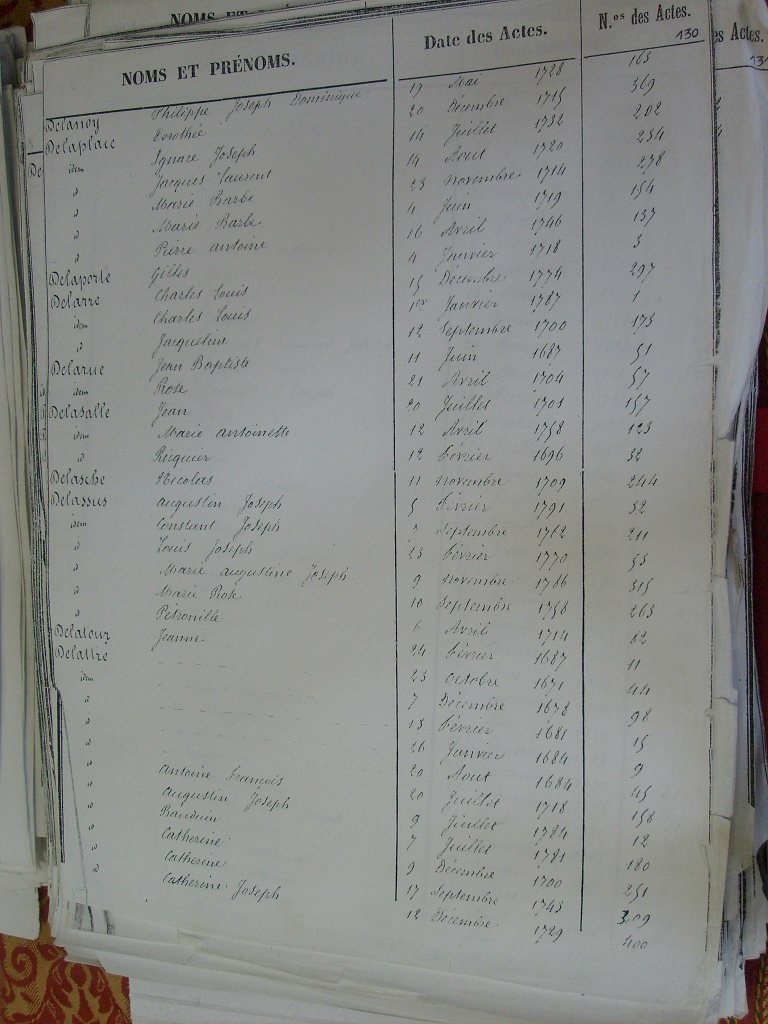 NOMS ET PRÉNOMS. Date des Actes. N.os des Actes.
130
Delannoy Philippe Joseph Dominique 17 Mai 1728 163
Delaplace Dorothée 20 Decembre 1715 369
idem Ignace Joseph 14 Juillet 1732 202
d Jacques Laurent 14 Aout 1720 234
d Marie Barbe 23 novembre 1714 278
d Marie Barbe 4 Juin 1719 154
d Pierre antoine 16 Avril 1746 137
Delaporte Gilles 4 Janvier 1718 3
Delarre Charles Louis 15 Décembre 1774 297
idem Charles Louis 1er Janvier 1787 1
d Jacqueline 12 Septembre 1700 173
Delarue Jean Baptiste 11 Juin 1687 51
idem Rose 21 Avril 1704 57
Delasalle Jean 20 Juillet 1701 157
idem Marie antoinette 12 Avril 1758 123
d Ricquier 12 Février 1696 32
Delasche Nicolas 11 novembre 1709 244
Delassus augustin Joseph 5 Février 1791 32
idem Constant Joseph 7 Septembre 1762 211
d Louis Joseph 23 Février 1770 53
d Marie augustine Joseph 9 novembre 1786 315
d Marie Rose 10 Septembre 1758 263
d Pétronille 6 Avril 1714 82
Delatour Jeanne 24 Février 1687 11
Delattre 23 Octobre 1671 44
idem 7 Décembre 1678 98
d 13 Février 1681 15
d 26 Janvier 1684 9
d 20 Aout 1684 45
d antoine François 20 Juillet 1718 158
d augustin Joseph 9 Juillet 1784 12
d Bauduin 7 Juillet 1781 180
d Catherine 9 Décembre 1700 251
d Catherine 17 Septembre 1743 309
d Catherine Joseph 12 Décembre 1729 400